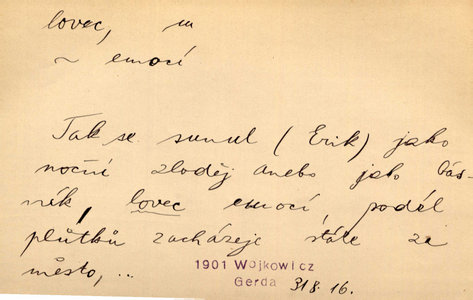 lovec, m
~ emocí
Tak se sunul (Erik) jako
noční zloděj anebo jako bás-
ník, lovec emocí podél
plůtků zacházeje stále za
město, ...
1901 Wojkowicz
Gerda
318. 16.